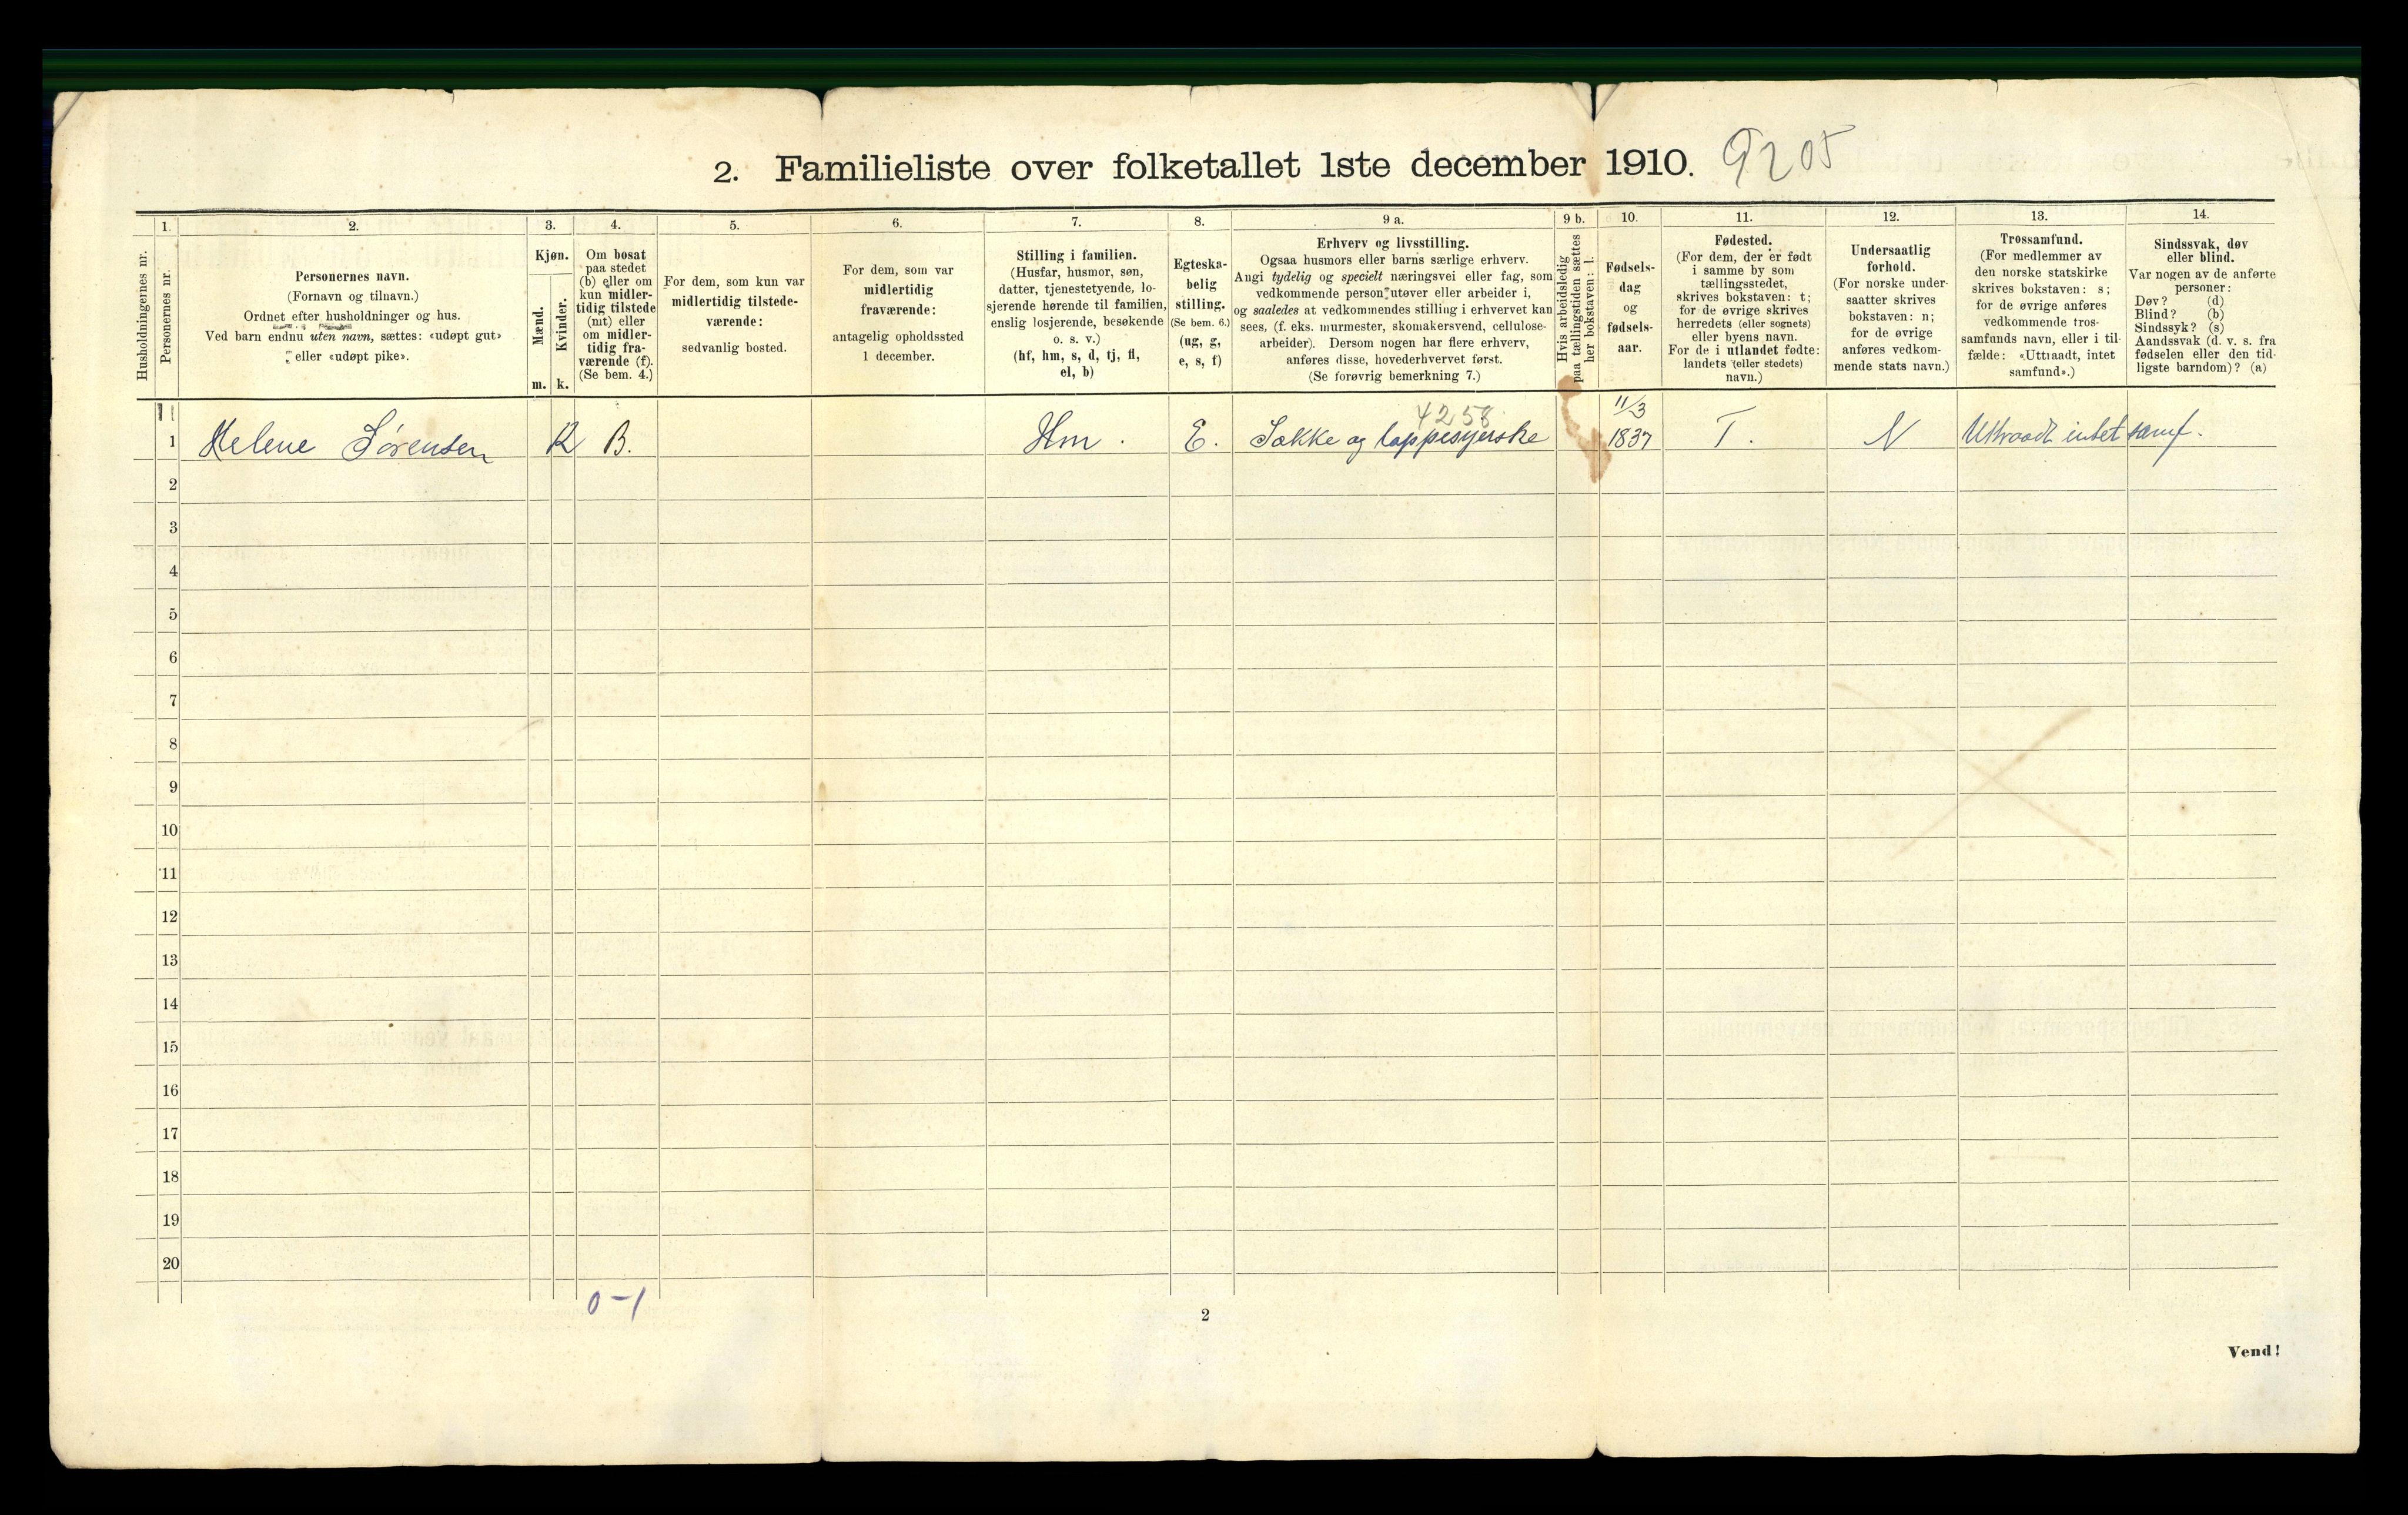 2. Familieliste over folketallet 1ste december 1910. 9205
Husholdningernes nr.
1.
Personernes nr.
2.
Personernes navn.
(Fornavn og tilnavn.)
Ordnet efter husholdninger og hus.
Ved barn endnu uten navn, sættes: «udøpt gut»
eller «udøpt pike».
3.
Kjøn.
Mænd.
Kvinder.
m. k.
4.
Om bosat
paa stedet
(b) eller om
kun midler-
tidig tilstede
(mt) eller
om midler-
tidig fra-
værende (f).
(Se bem. 4.)
5.
For dem, som kun var
midlertidig tilstede-
værende:
sedvanlig bosted.
6.
For dem, som var
midlertidig
fraværende:
antagelig opholdssted
1 december.
7.
Stilling i familien.
(Husfar, husmor, søn,
datter, tjenestetyende, lo-
sjerende hørende til familien,
enslig losjerende, besøkende
o. s. v.)
(hf, hm, s, d, tj, fl,
el, b)
8.
Egteska-
belig
stilling.
(Se bem. 6.)
(ug, g,
e, s, f)
9 a.
Erhverv og livsstilling.
Ogsaa husmors eller barns særlige erhverv.
Angi tydelig og specielt næringsvei eller fag, som
vedkommende person utøver eller arbeider i,
og saaledes at vedkommendes stilling i erhvervet kan
sees, (f. eks. murmester, skomakersvend, cellulose-
arbeider). Dersom nogen har flere erhverv,
anføres disse, hovederhvervet først.
(Se forøvrig bemerkning 7.)
9 b.
Hvis arbeidsledig
paa tællingstiden sættes
her bokstaven: l.
10.
Fødsels-
dag
og
fødsels-
aar.
11.
Fødested.
(For dem, der er født
i samme by som
tællingsstedet,
skrives bokstaven: t;
for de øvrige skrives
herredets (eller sognets)
eller byens navn.
For de i utlandet fødte:
landets (eller stedets)
navn.)
12.
Undersaatlig
forhold.
(For norske under-
saatter skrives
bokstaven: n;
for de øvrige
anføres vedkom-
mende stats navn.)
13.
Trossamfund.
(For medlemmer av
den norske statskirke
skrives bokstaven: s;
for de øvrige anføres
vedkommende tros-
samfunds navn, eller i til-
fælde: «Uttraadt, intet
samfund».)
14.
Sindssvak, døv
eller blind.
Var nogen av de anførte
personer:
Døv? (d)
Blind? (b)
Sindssyk? (s)
Aandssvak (d. v. s. fra
fødselen eller den tid-
ligste barndom)? (a)
4258 11/3
1 Helene Sørensen K B. Hm. E. Sække og lappesyerske 1837 T. N Utraadt intet samf.
2
3
4
5
6
7
8
9
10
11
12
13
14
15
16
17
18
19
20
0-1
2
Vend!